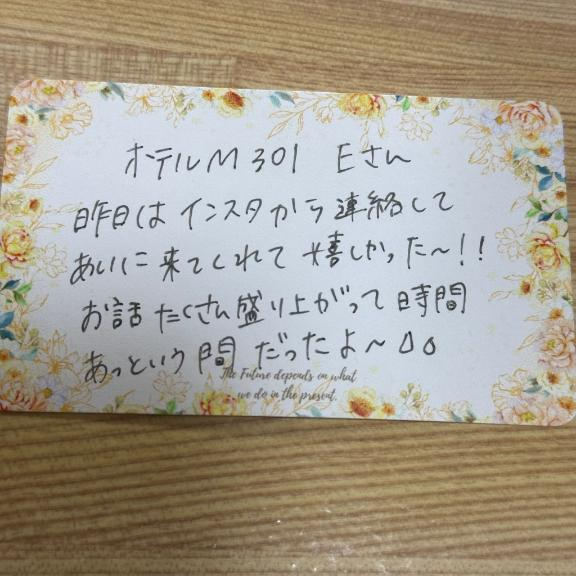 ホテルM 301 Eさん
昨日は インスタから 連絡して
あいに 来てくれて 嬉しかった～!!
お話 たくさん 盛り上がって 時間
あっという間 だったよ～
The Future depends on what
we do in the present.